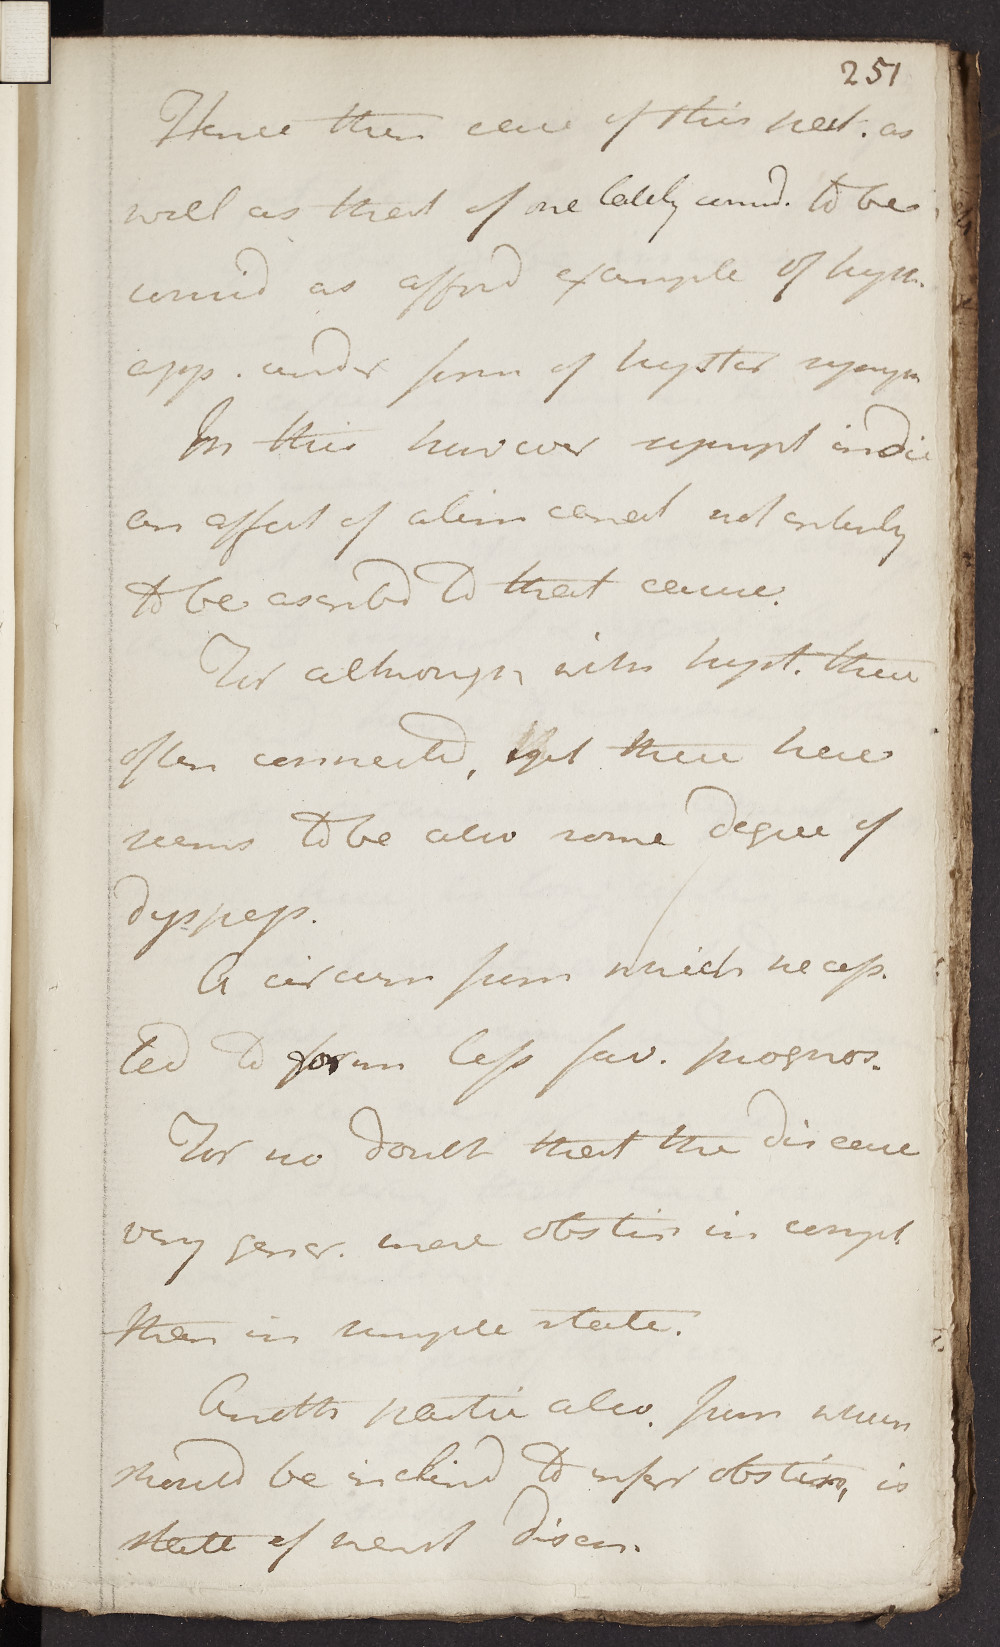 251
Hence then case of this pat. as
well as that of one lately considd. to be
considd as afford example of hyst.
app. under form of hyster
In this however sympt indic
an affect of alim canal not entirely
to be ascribd to that cause.
For although with hyst. these
often connected, yet there here
seems to be also some degree of
dyspeps.
A circum from which we disp.
ted to form less fav. prognos.
For no doubt that the disease
very gener. more obstin in compl.
than in simple state.
Anoth partic also. from whch
should be inclind to infer obstin, is
state of menst disch.